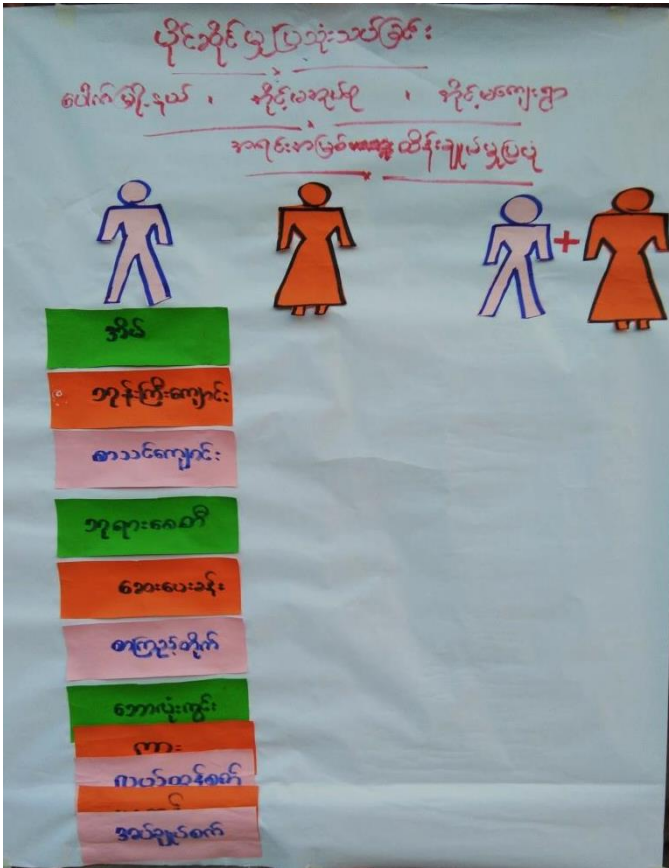 ပိုင်ဆိုင်မှုပြသုံးသပ်ခြင်း
ပေါက်မြို့နယ် ၊ ကိုင်းမအုပ်စု ၊ ကိုင်းမကျေးရွာ
အရင်းအမြစ် ထိန်းချုပ်မှုပြပုံ
+
အိမ်
ဘုန်းကြီးကျောင်း
စာသင်ကျောင်း
ဘုရားစေတီ
ဆေးပေးခန်း
စာကြည့်တိုက်
ဘောလုံးကွင်း
ကား
လယ်ထွန်စက်
အပ်ချုပ်စက်